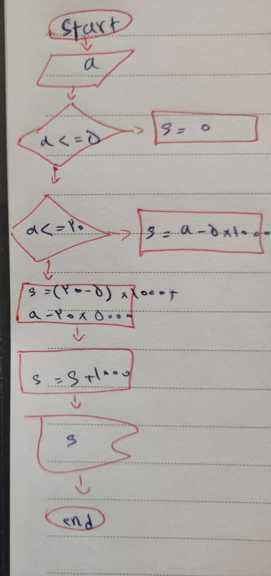 start
a
a <= ۵
s = ۰
a <= ۲۰
s = a - ۵ × ۱۰۰۰
s = (۲۰ - ۵) × ۱۰۰۰ +
a - ۲۰ × ۵۰۰۰
s = s + ۱۰۰۰
s
end